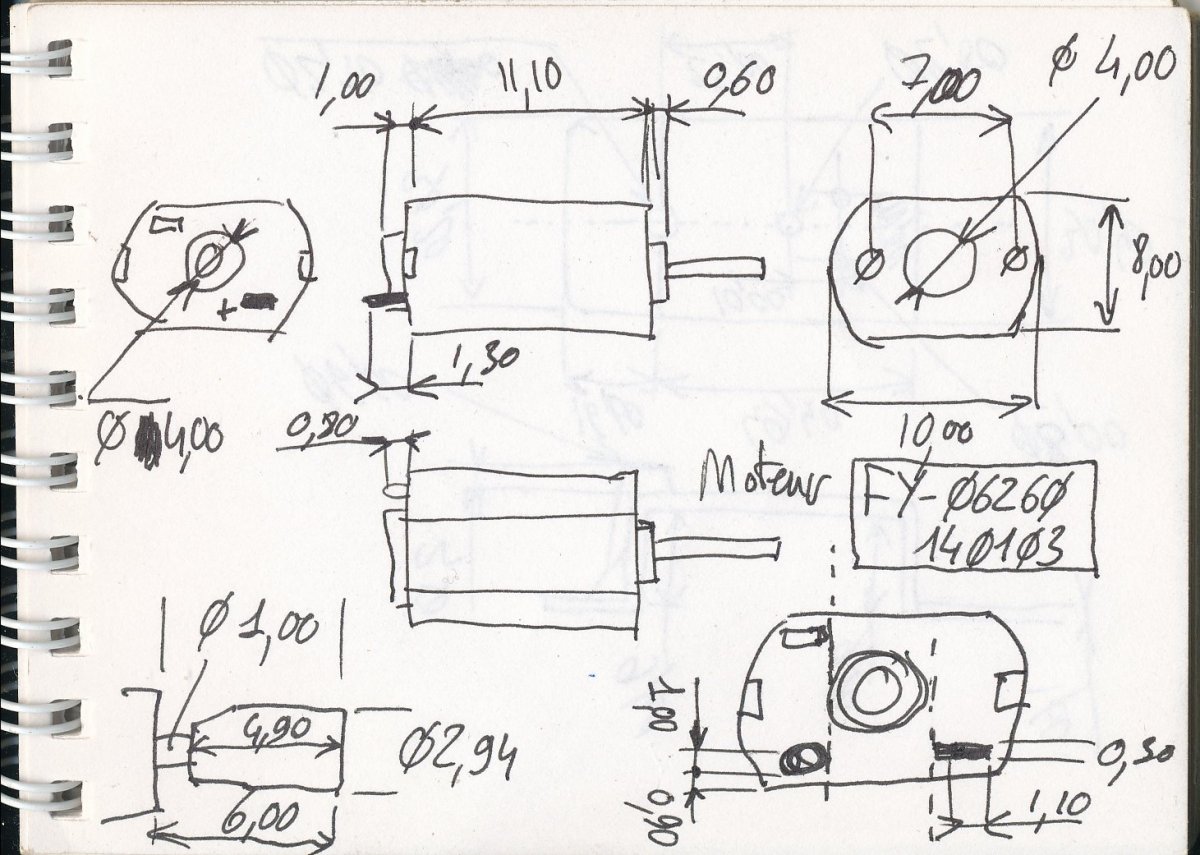 1,00
11,10
0,60
7,00
Ø 4,00
8,00
+
1,30
Ø 4,00
0,80
10,00
Moteur
FY-Ø626Ø
14Ø1Ø3
Ø 1,00
4,90
Ø2,94
6,00
1,00
0,90
0,30
1,10